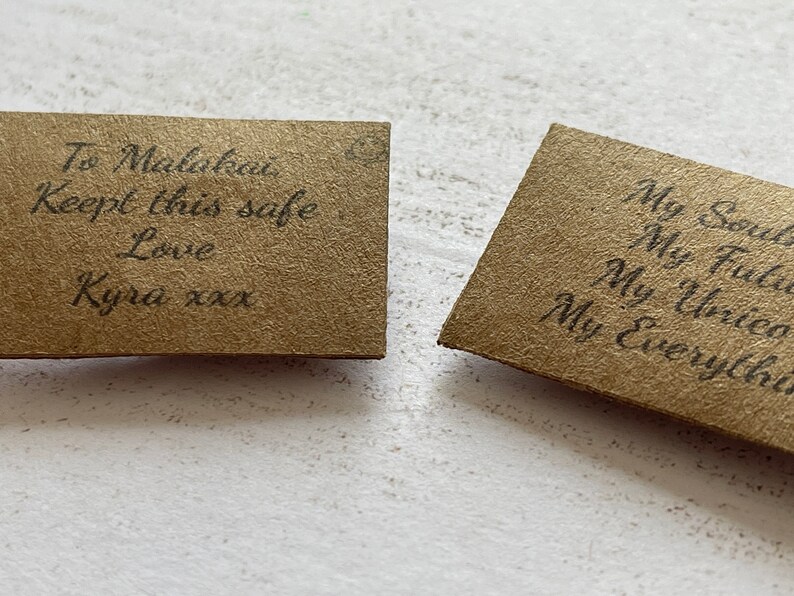 To Malakai,
Keept this safe
Love
Kyra xxx
My Souls
My Futu
My Unico
My Everythin